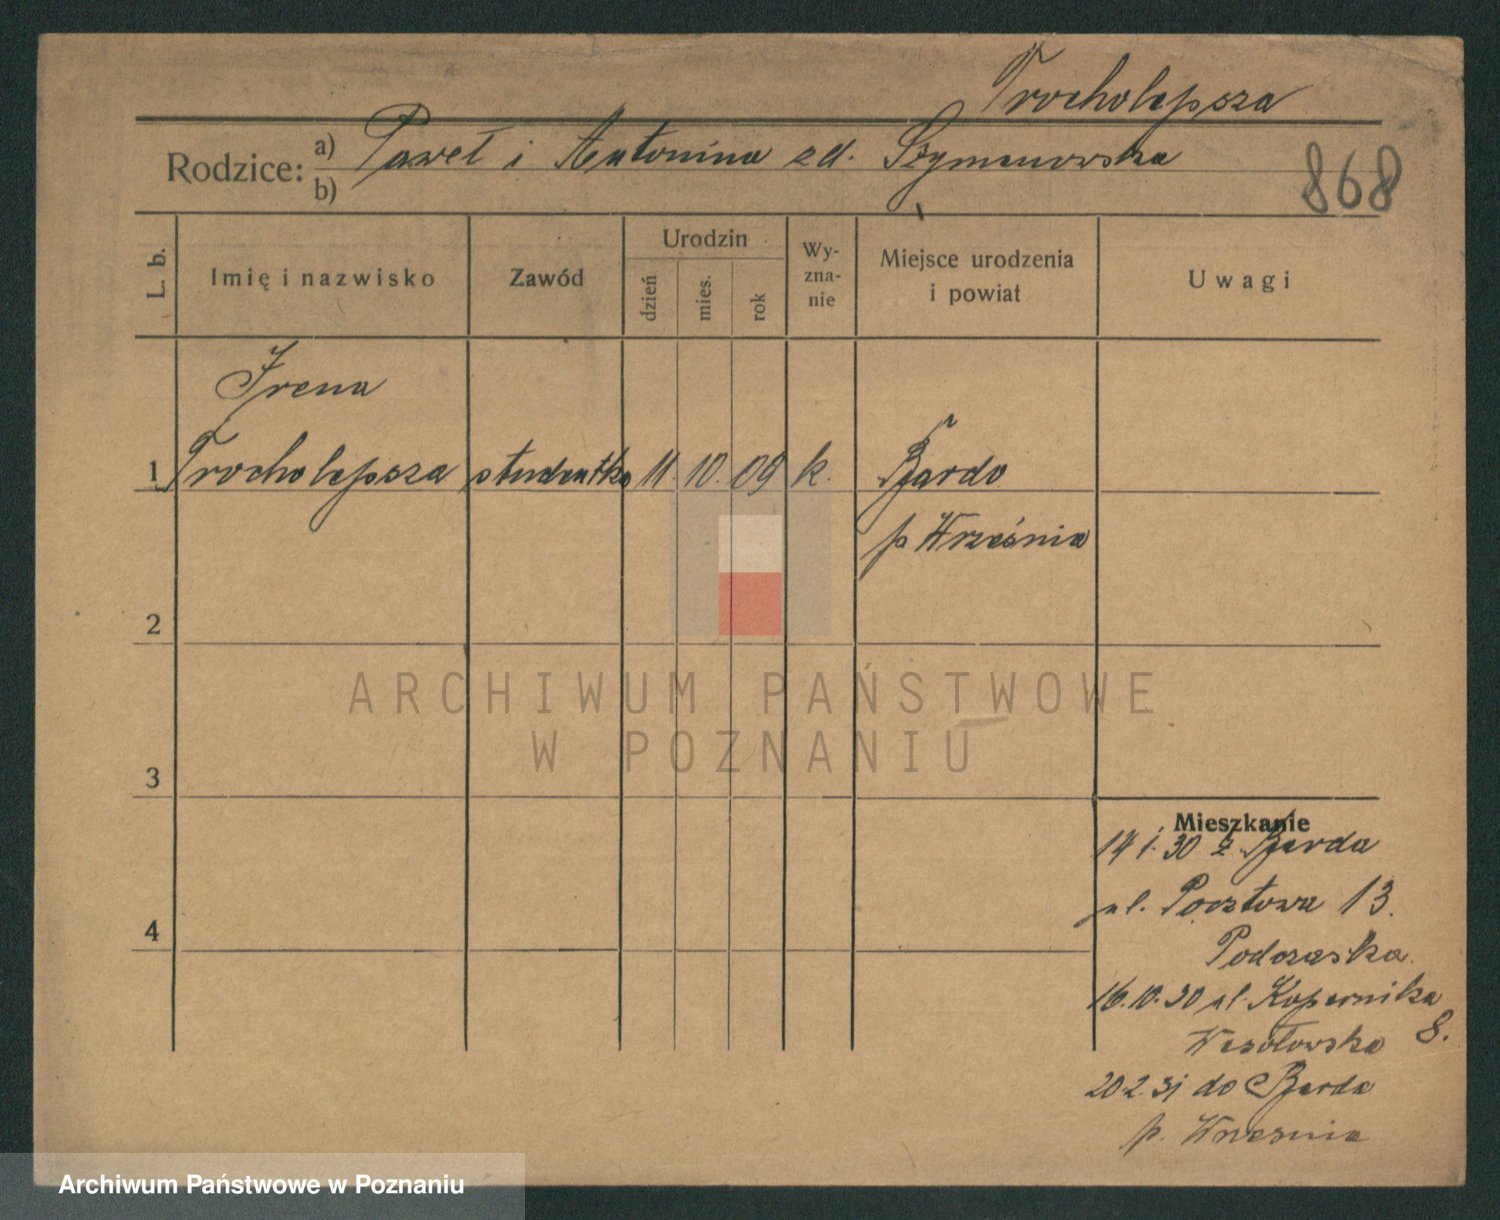 Trocholepsza
Rodzice: a) Paweł i Antonina zd. Szymanowska
b)
868
L. b.
Imię i nazwisko
Zawód
Urodzin
dzień
mies.
rok
Wy-
zna-
nie
Miejsce urodzenia
i powiat
Uwagi
Irena
1 Trocholepsza studentka 11. 10. 09 k. Bardo
p Września
2
ARCHIWUM PAŃSTWOWE
W POZNANIU
3
Mieszkanie
14 1. 30 z Barda
4
ul. Pocztowa 13.
Podczaska.
16.10.30 ul. Kopernika
8.
Wesołowska
20.2.31 do Barda
p. Wrzesnia
Archiwum Państwowe w Poznaniu